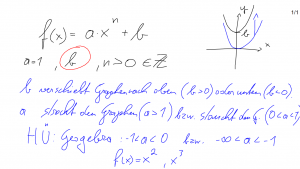 1/1
f(x) = a·xⁿ + b
y
b
x
a=1 , b , n>0 ∈ ℤ
b verschiebt Graphen nach oben (b>0) oder unten (b<0).
a streckt den Graphen (a>1) bzw. staucht den G. (0<a<1)
HÜ: Geogebra: -1<a<0 bzw. -∞<a<-1
f(x)=x², x³